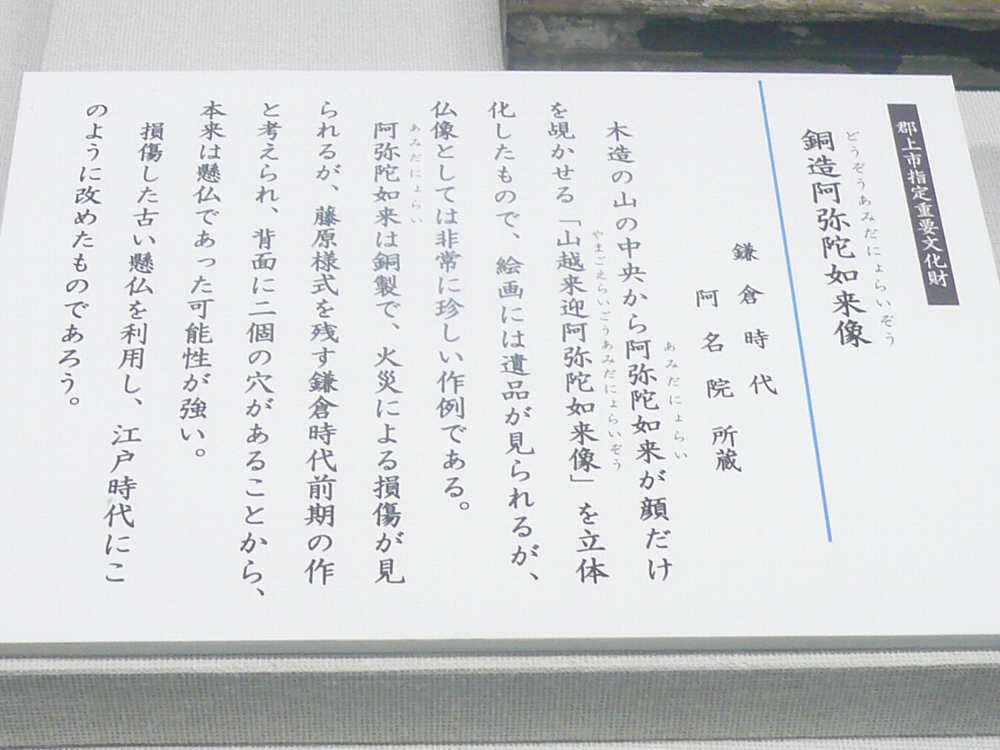 郡上市指定重要文化財
どうぞうあみだにょらいぞう
銅造阿弥陀如来像
鎌倉時代
阿名院所蔵
あみだにょらい
木造の山の中央から阿弥陀如来が顔だけ
やまごえらいごうあみだにょらいぞう
を覗かせる「山越来迎阿弥陀如来像」を立体
化したもので、絵画には遺品が見られるが、
仏像としては非常に珍しい作例である。
あみだにょらい
阿弥陀如来は銅製で、火災による損傷が見
られるが、藤原様式を残す鎌倉時代前期の作
と考えられ、背面に二個の穴があることから、
本来は懸仏であった可能性が強い。
損傷した古い懸仏を利用し、江戸時代にこ
のように改めたものであろう。